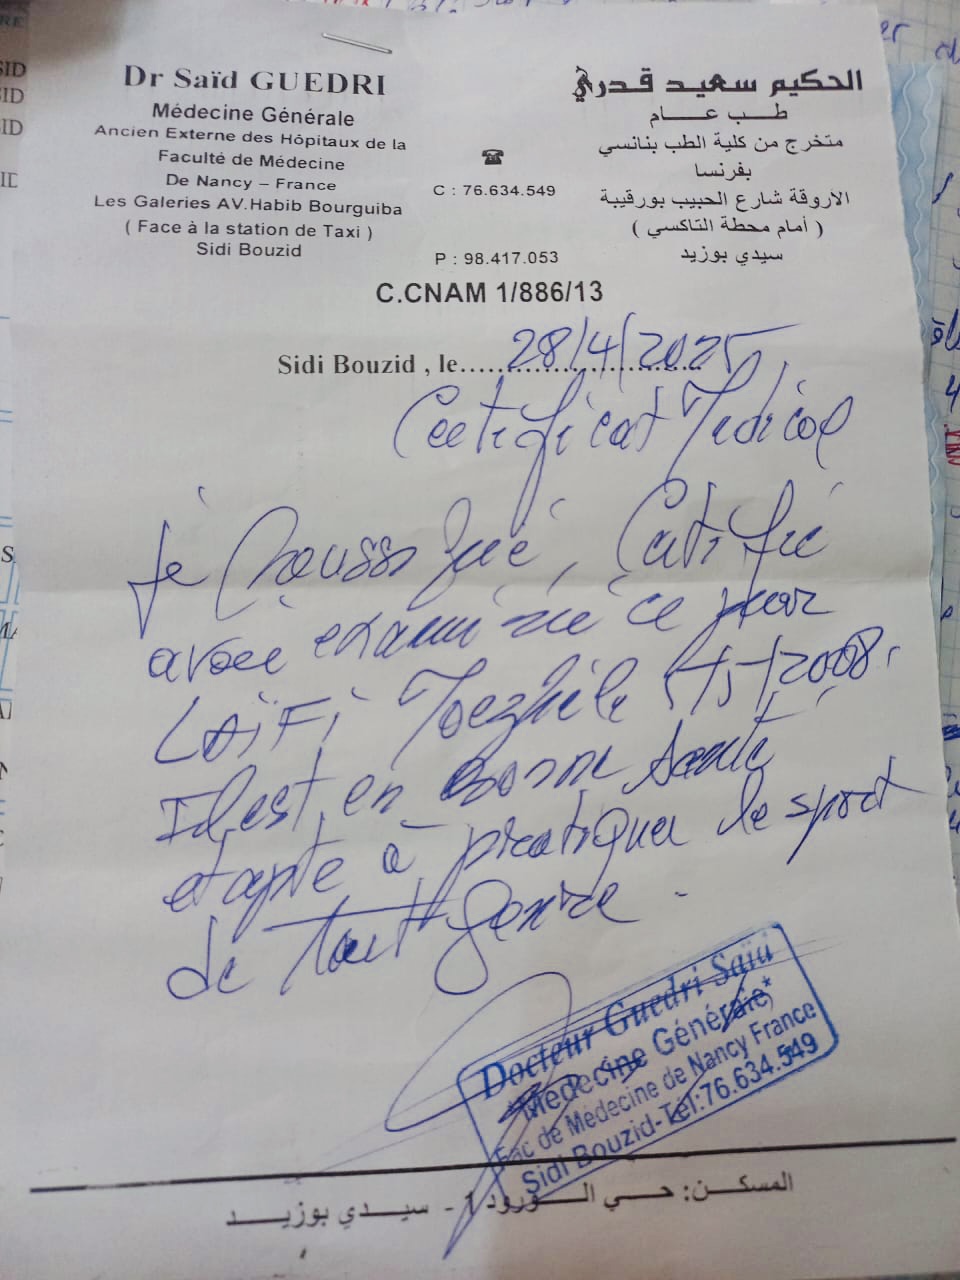 Dr Saïd GUEDRI
Médecine Générale
Ancien Externe des Hôpitaux de la
Faculté de Médecine
De Nancy – France
Les Galeries AV.Habib Bourguiba
( Face à la station de Taxi )
Sidi Bouzid
C : 76.634.549
P : 98.417.053
الحكيم سعيد قدري
طب عام
متخرج من كلية الطب بنانسي
بفرنسا
الأروقة شارع الحبيب بورقيبة
( أمام محطة التاكسي )
سيدي بوزيد
C.CNAM 1/886/13
Sidi Bouzid , le 28/4/2025
Certificat Médical
Je soussigné, Certifie
avoir examiné ce jour
LAÏFI 2008
Il est en Bonne Santé
et apte à pratiquer le sport
de tout genre.
Docteur Guedri Saïd
*Médecine Générale*
Fac de Médecine de Nancy France
Sidi Bouzid-Tél:76.634.549
المسكن: حي الورود 1 - سيدي بوزيد